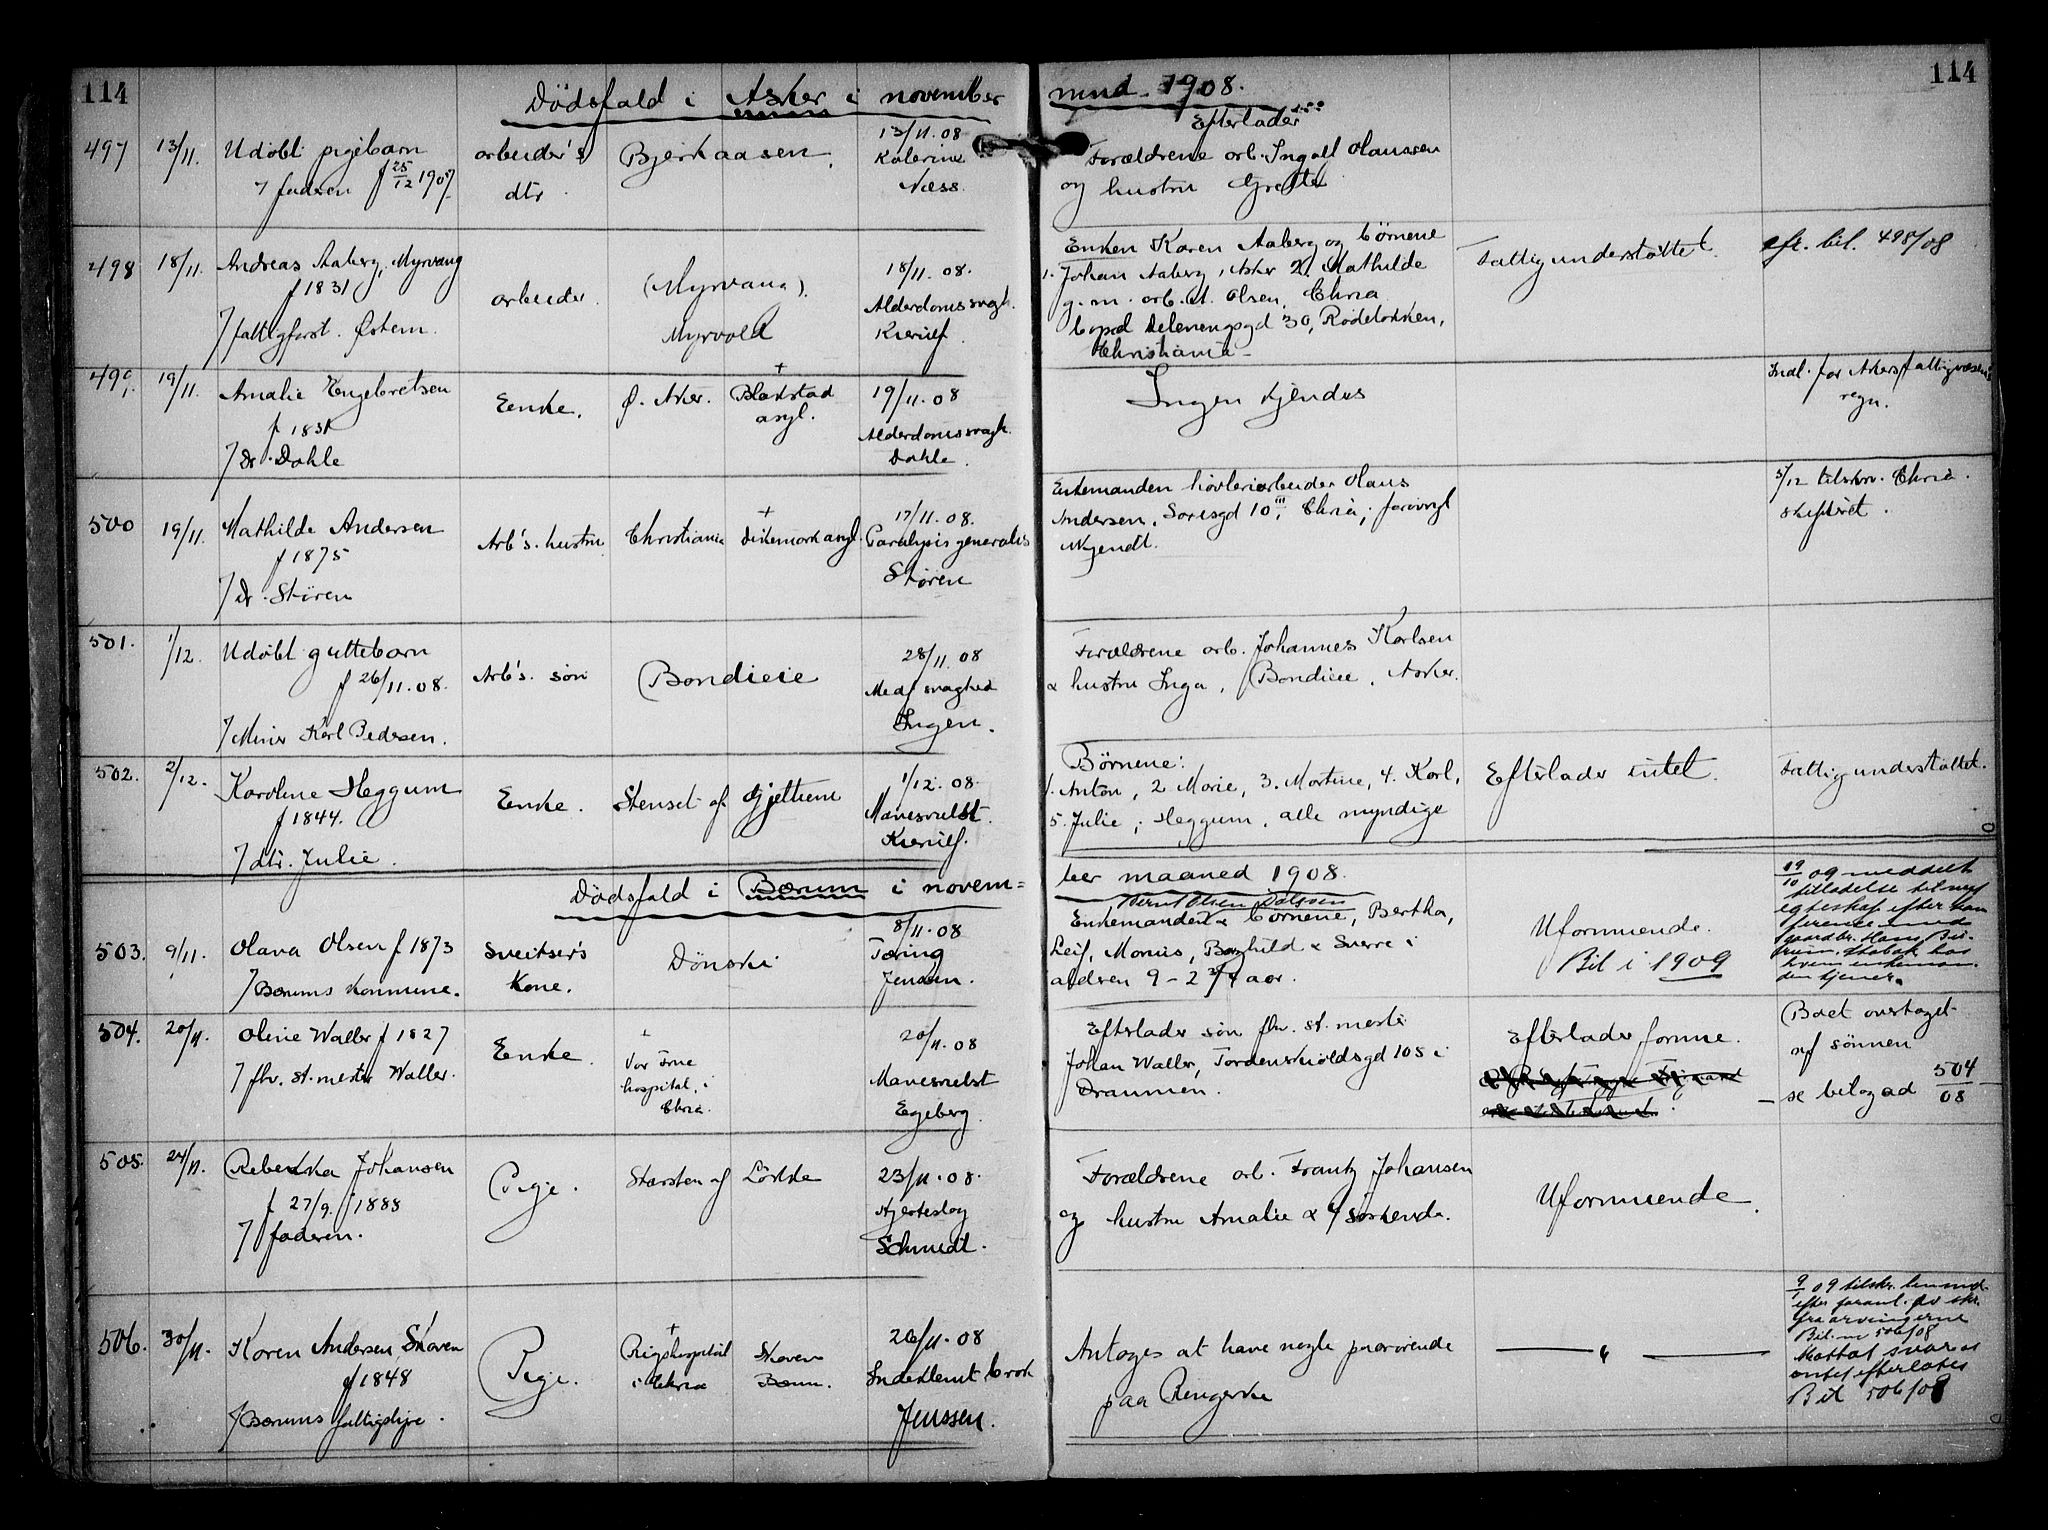 114
114
Dödsfald i Asker i november mnd. 1908.
Efterlader
497 13/11. Udöbt pigebarn arbeider's Bjerkaasen 13/11.08 Forældrene arb. Ingolf Olaussen
7 faderen f 25/12 1907. dtr Katerine Næss og hustru Grethe
498 18/11. Andreas Aaberg, Myrvang arbeider. (Myrvang). 18/11.08. Enken Karen Aaberg og börnene Fattigunderstöttet. cfr. bil. 498/08
f 1831 Myrvold Alderdomssvagh. 1. Johan Aaberg, Asker 2. Mathilde
7 fattigforst. Östern. Kierulf. g.m. arb. A. Olsen, Chria
bopæl Delenengsgd 30, Rodelökken,
Christiania
499. 19/11. Amalie Engebretsen Enke. Ö. Aker. + Blakstad asyl. 19/11.08 Ingen kjendes Indl. for Akers fattigvæsens
f 1831 Alderdomssvagh. regn.
7 Dr. Dahle Dahle.
500 19/11. Mathilde Andersen Arb's. hustru Christiania + Dikemark asyl. 17/11.08. Enkemanden hövleriarbeider Olaus 5/12 tilskr. Chria
f 1875 Paralysis generalis Andersen, Sorisgd 10 III, Chria; forövrigt skifteret.
7 Dr. Stören Stören ukjendt.
501. 1/12. Udöbt guttebarn Arb's. sön Bondieie 28/11.08 Forældrene arb. Johannes Karlsen
f 26/11.08. Medf svaghed & hustru Inga, Bondieie, Asker.
7 Minör Karl Pedersen. Ingen.
502. 2/12. Karoline Heggum Enke. Stenset af Gjettum 1/12.08. Börnene: Efterlader intet. Fattigunderstöttet.
f 1844. Mavesvulst. 1. Anton, 2 Marie, 3. Martine, 4. Karl,
7 dtr. Julie. Kierulf. 5. Julie, Heggum, alle myndige
Dödsfald i Bærum i november maaned 1908.
503. 9/11. Olava Olsen f 1873 Sveitser's Kone. Dönski 8/11.08 Bernt Olsen
7 Bærums kommune. Tæring Enkemanden & börnene, Bertha, Uformuende. 19/10 09 meddelt
Jensen. Leif, Borghild & Sverre i Bil i 1909 tilladelse til nyt
alderen 9 - 2 3/4 aar. egteskap efter
gaardbr. Hans
hvem enkemanden tjener.
504. 20/11. Oline Waller f 1827 Enke. + Vor Frue hospital, i Chria. 20/11.08 Efterlader sön fhv. st. mester Efterlader formue. Boet overtaget
7 fhv. st. mester Waller. Mavesvulst Johan Waller, Tordenskioldsgd 105 i af sönnen
Egeberg. Drammen. - se bilag ad 504/08
505. 24/11. Rebekka Johansen Pige. Stærsten af Lökke 23/11.08. Forældrene arb. Frantz Johansen Uformuende.
f 27/9. 1888 Hjerteslag og hustru Amalie & 4 söskende.
7 faderen. Schmedt.
506. 30/11. Karen Andersen Skoven Pige. + Rigshospital i Chria Skoven Bærum. 26/11.08 Antages at have nogle paarörende — " — 9/1 09 tilskr. lensmd.
f 1848 Indeklemt brok paa Ringerike fra arvingerne
7 Bærums fattigstyre. Jenssen. Bil. 506/08
Bil 506/08